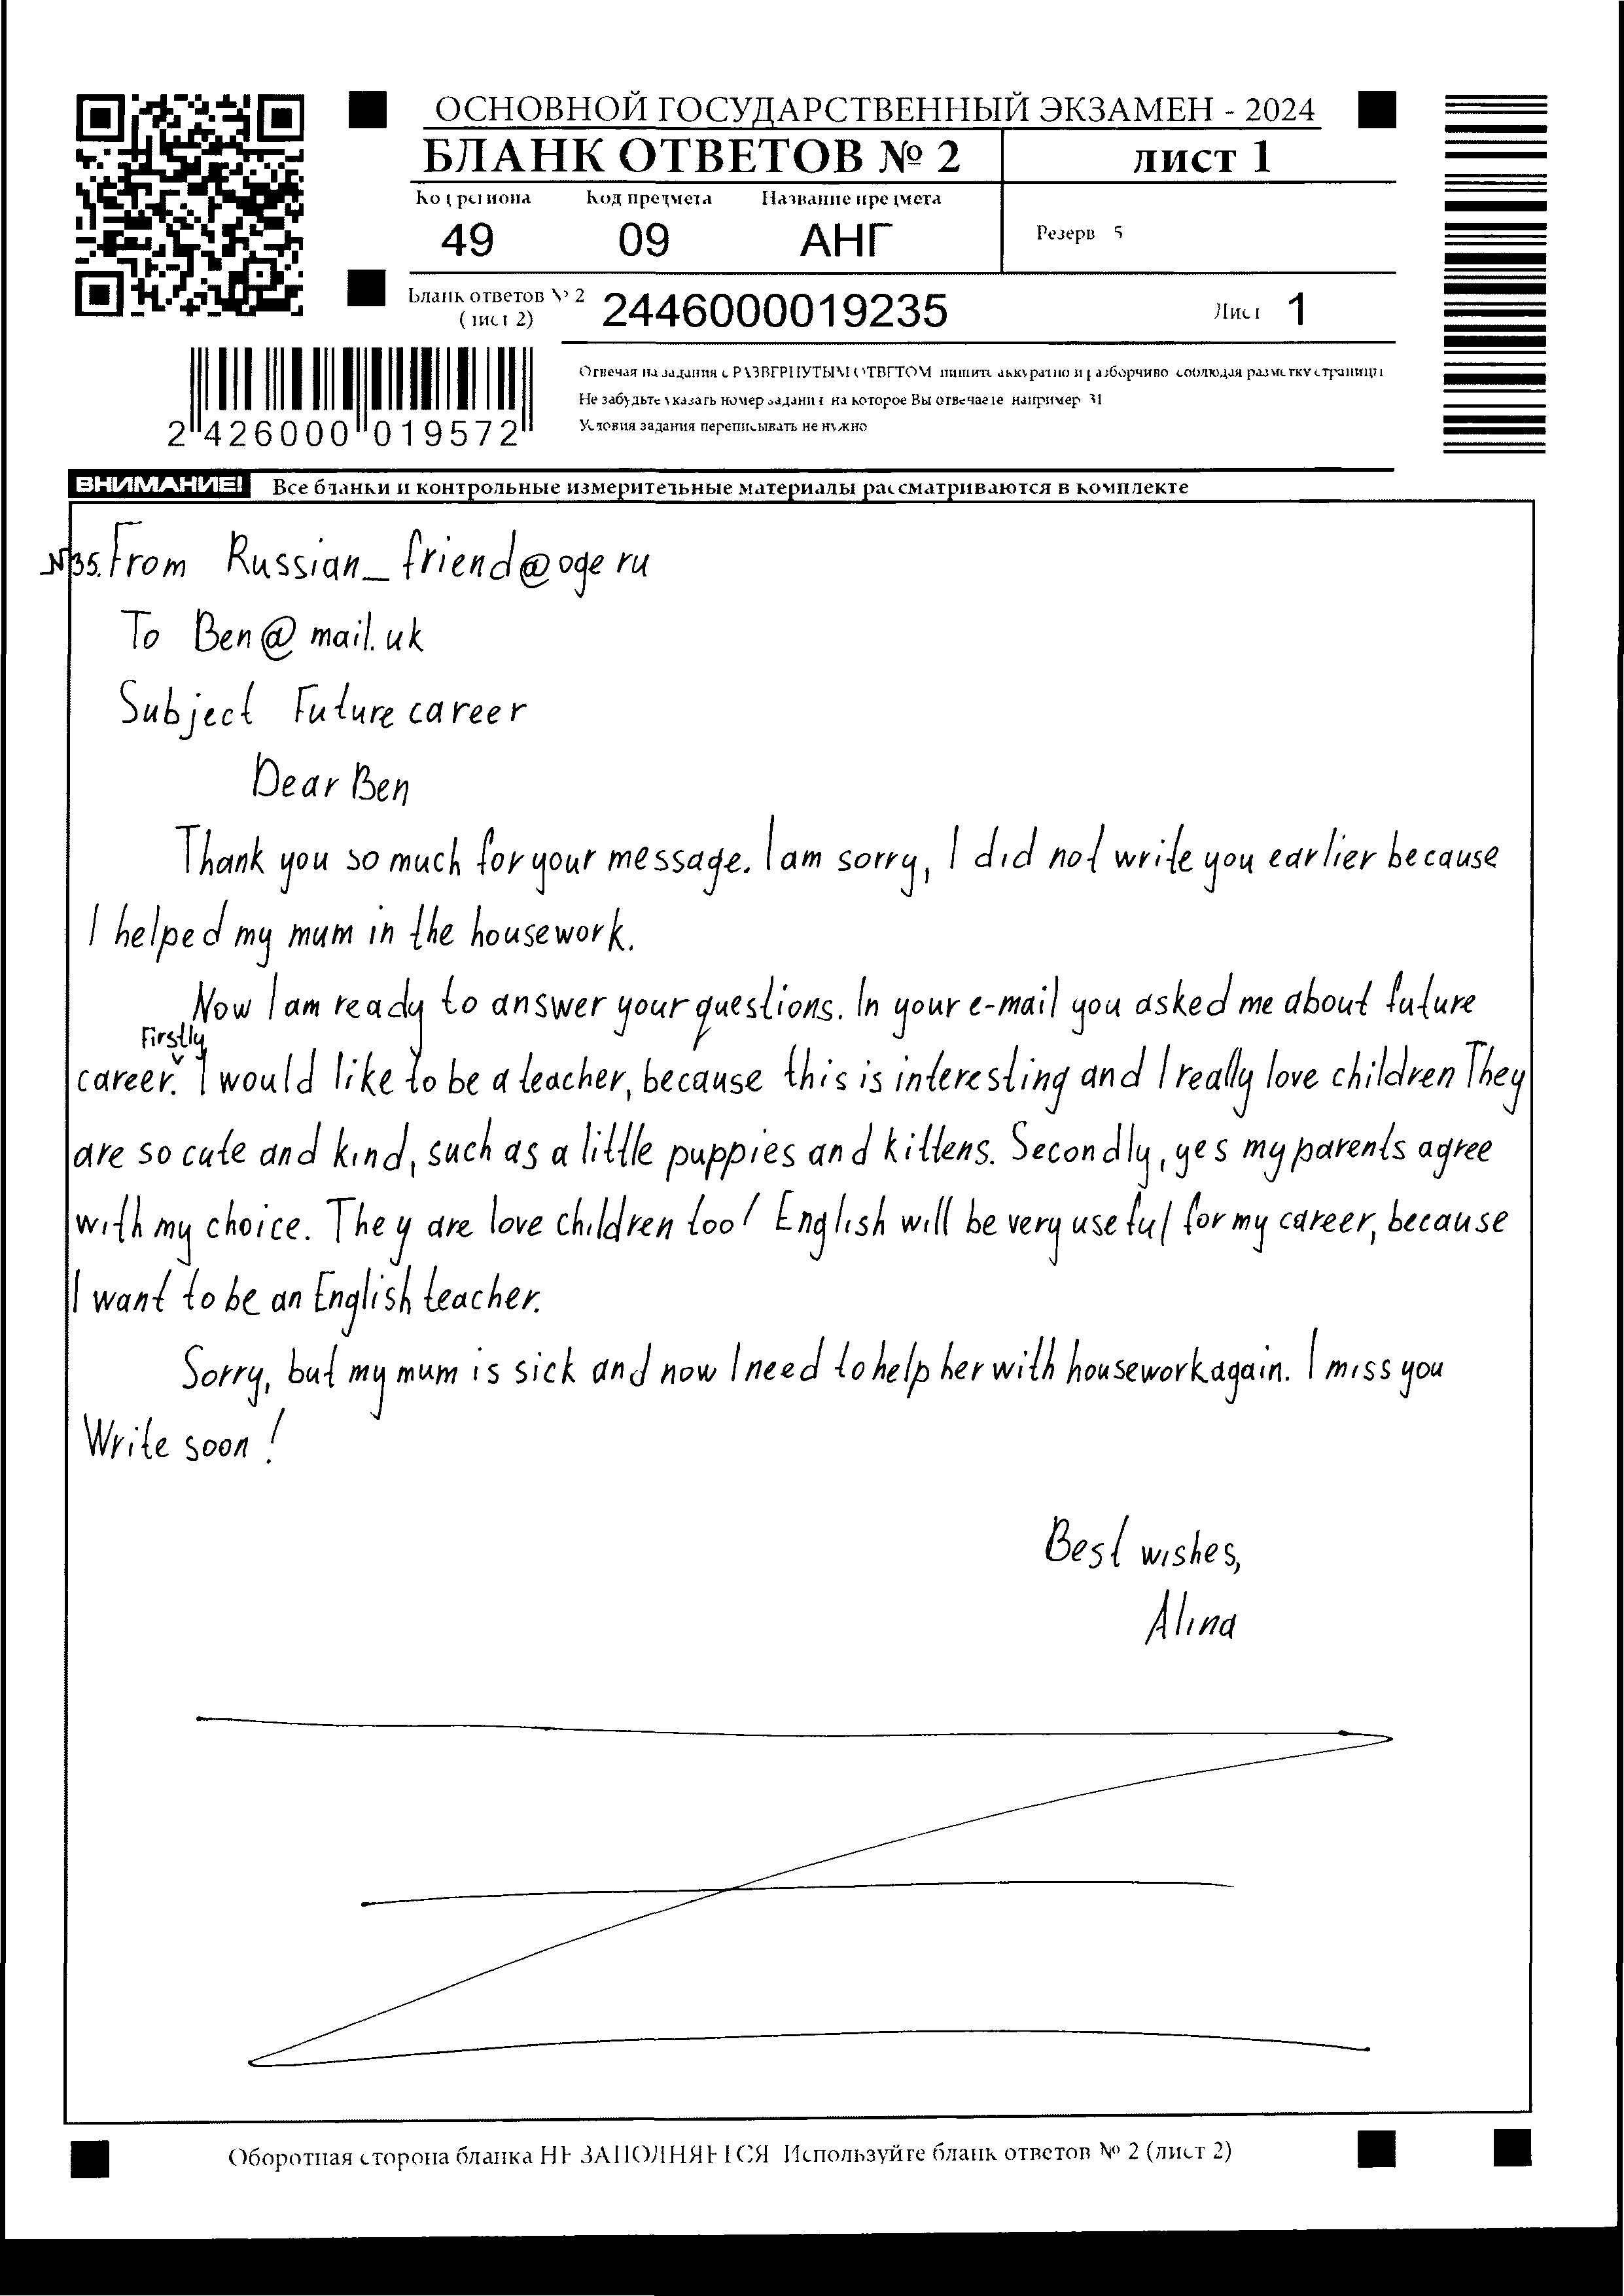 ОСНОВНОЙ ГОСУДАРСТВЕННЫЙ ЭКЗАМЕН - 2024
БЛАНК ОТВЕТОВ № 2
лист 1
Код региона Код предмета Название предмета
49 09 АНГ
Резерв 5
Бланк ответов № 2
(лист 2)
2446000019235
Лист 1
2 426000 019572
Отвечая на задания с РАЗВЕРНУТЫМ ОТВЕТОМ пишите аккуратно и разборчиво соблюдая разметку страницы
Не забудьте указать номер задания на которое Вы отвечаете например 31
Условия задания переписывать не нужно
ВНИМАНИЕ! Все бланки и контрольные измерительные материалы рассматриваются в комплекте
№35. From Russian_friend@oge ru
To Ben@mail.uk
Subject Future career
Dear Ben
Thank you so much for your message. I am sorry, I did not write you earlier because
I helped my mum in the housework.
Now I am ready to answer your questions. In your e-mail you asked me about future
Firstly
career. I would like to be a teacher, because this is interesting and I really love children They
are so cute and kind, such as a little puppies and kittens. Secondly, yes my parents agree
with my choice. They are love children too! English will be very useful for my career, because
I want to be an English teacher.
Sorry, but my mum is sick and now I need to help her with housework again. I miss you
Write soon!
Best wishes,
Alina
Оборотная сторона бланка НЕ ЗАПОЛНЯЕТСЯ Используйте бланк ответов № 2 (лист 2)